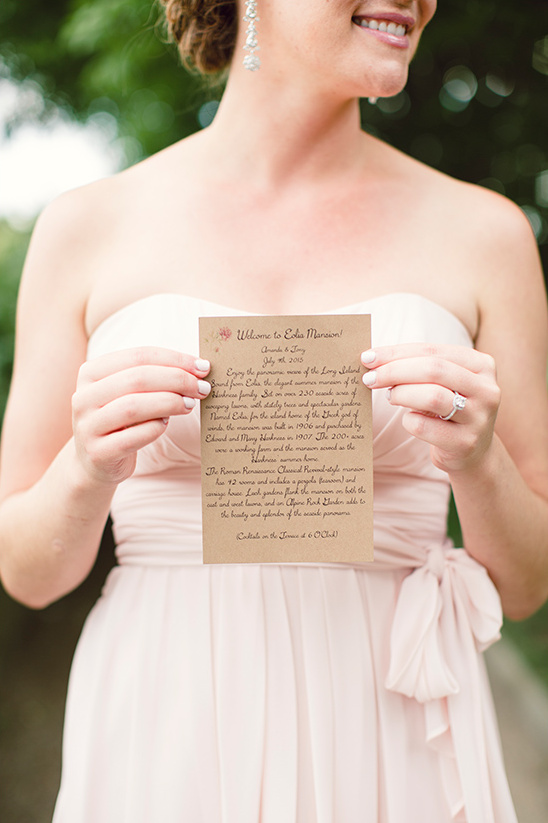 Welcome to Eolia Mansion!
Amanda & Tony
July 4th, 2013
Enjoy the panoramic views of the Long Island
Sound from Eolia, the elegant summer mansion of the
Harkness family. Set on over 230 seaside acres of
sweeping lawns, with stately trees and spectacular gardens.
Named Eolia, for the island home of the Greek god of
winds, the mansion was built in 1906 and purchased by
Edward and Mary Harkness in 1907. The 200+ acres
were a working farm and the mansion served as the
Harkness' summer home.
The Roman Renaissance Classical Revival-style mansion
has 42 rooms and includes a pergola (tearoom) and
carriage house. Lush gardens flank the mansion on both the
east and west lawns, and an Alpine Rock Garden adds to
the beauty and splendor of the seaside panorama.
(Cocktails on the Terrace at 6 O'Clock)